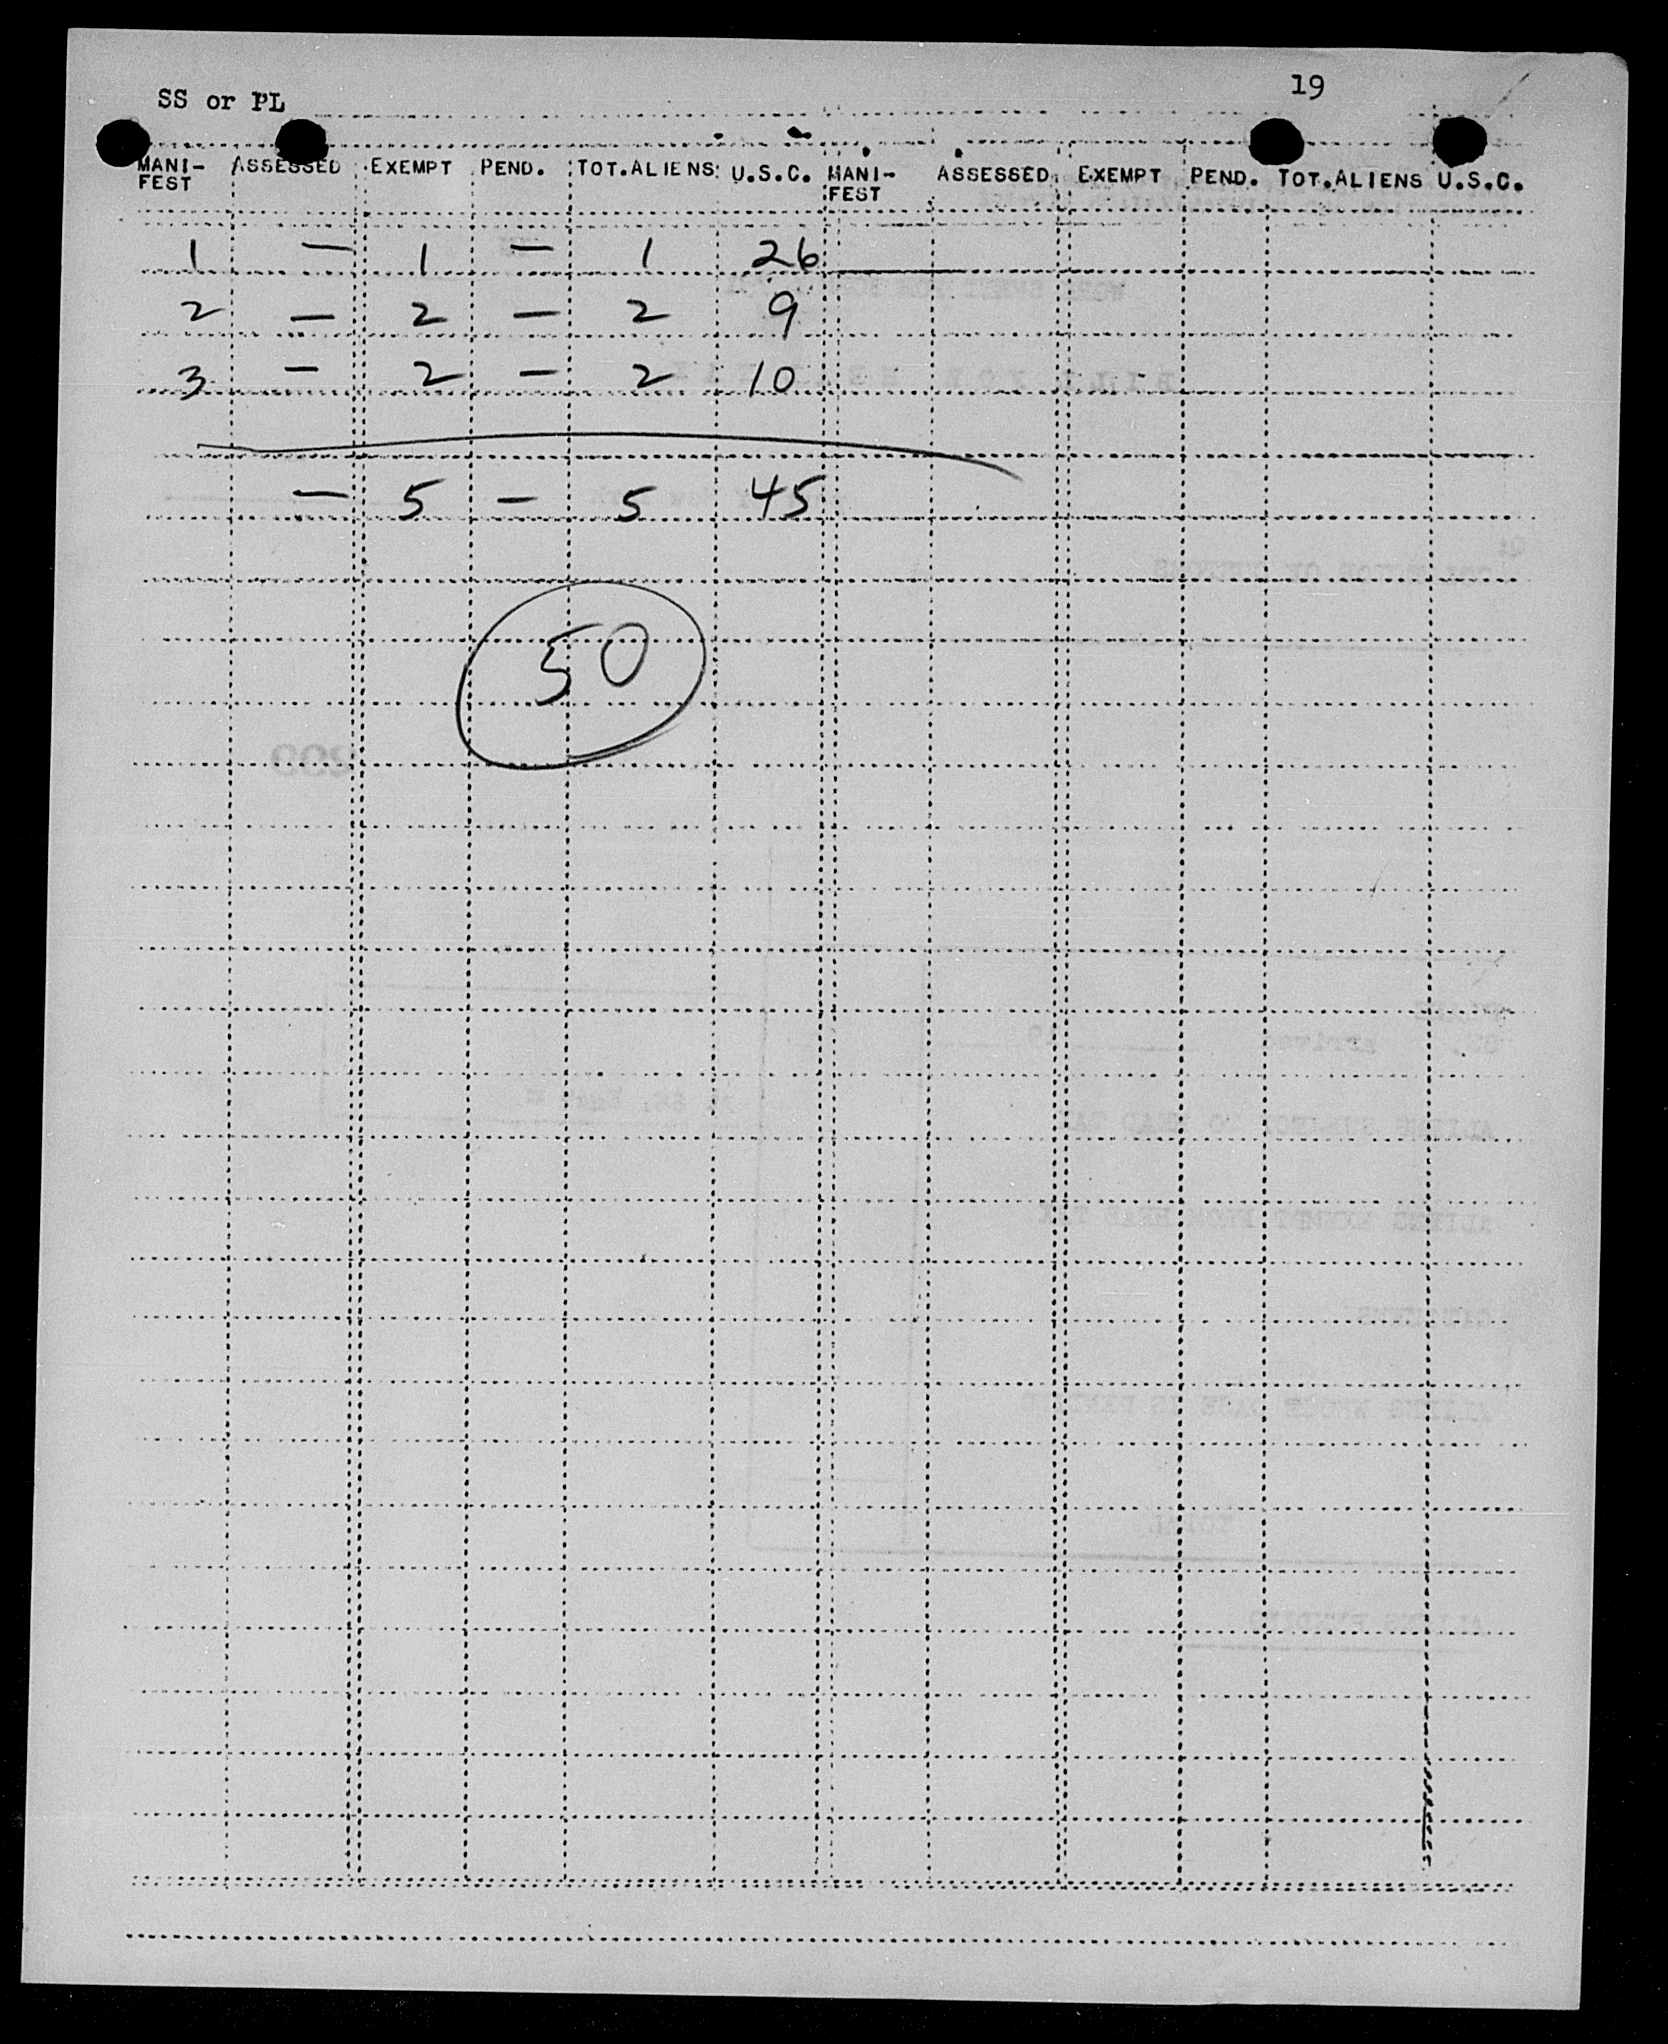 19
SS or PL
MANI- ASSESSED EXEMPT PEND. TOT.ALIENS U.S.C. MANI- ASSESSED EXEMPT PEND. TOT.ALIENS U.S.C.
FEST FEST
1 — 1 — 1 26
2 — 2 — 2 9
3 — 2 — 2 10
— 5 — 5 45
50